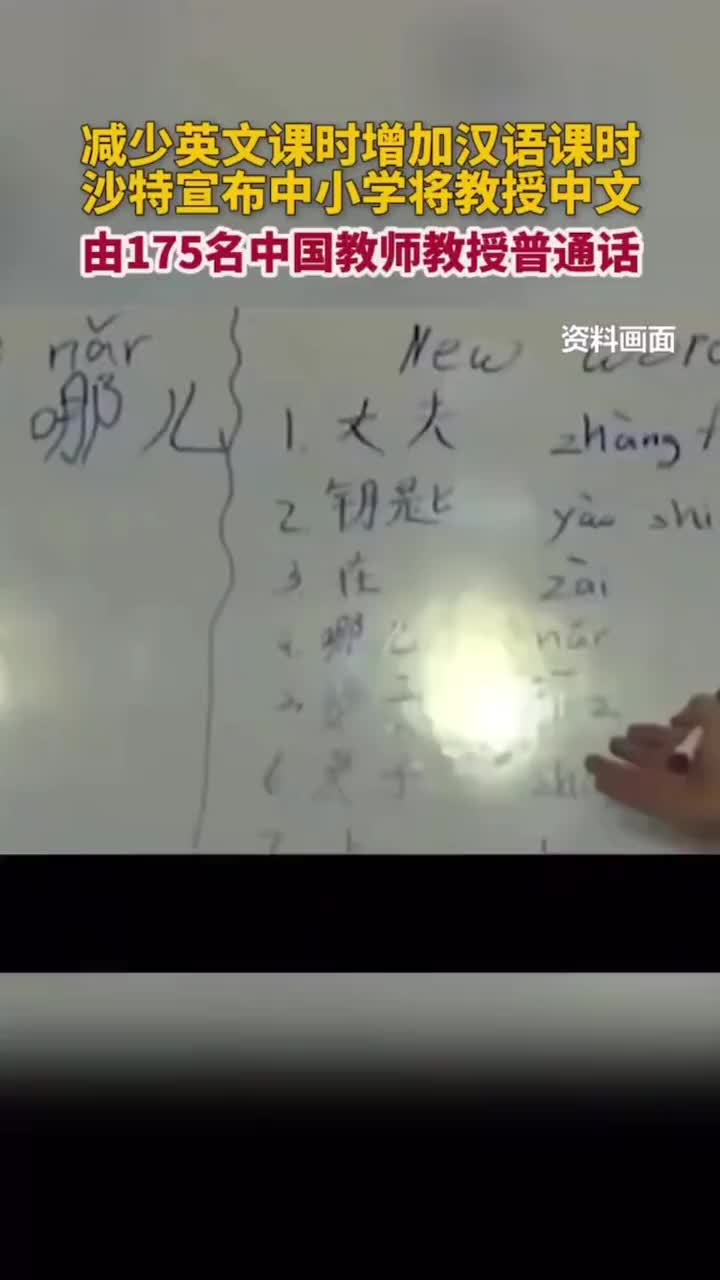 减少英文课时增加汉语课时
沙特宣布中小学将教授中文
由175名中国教师教授普通话
资料画面
nǎr
哪儿
New wor
1. 丈夫 zhàng f
2. 钥匙 yào shi
3 在 zài
4. 哪儿 nǎr